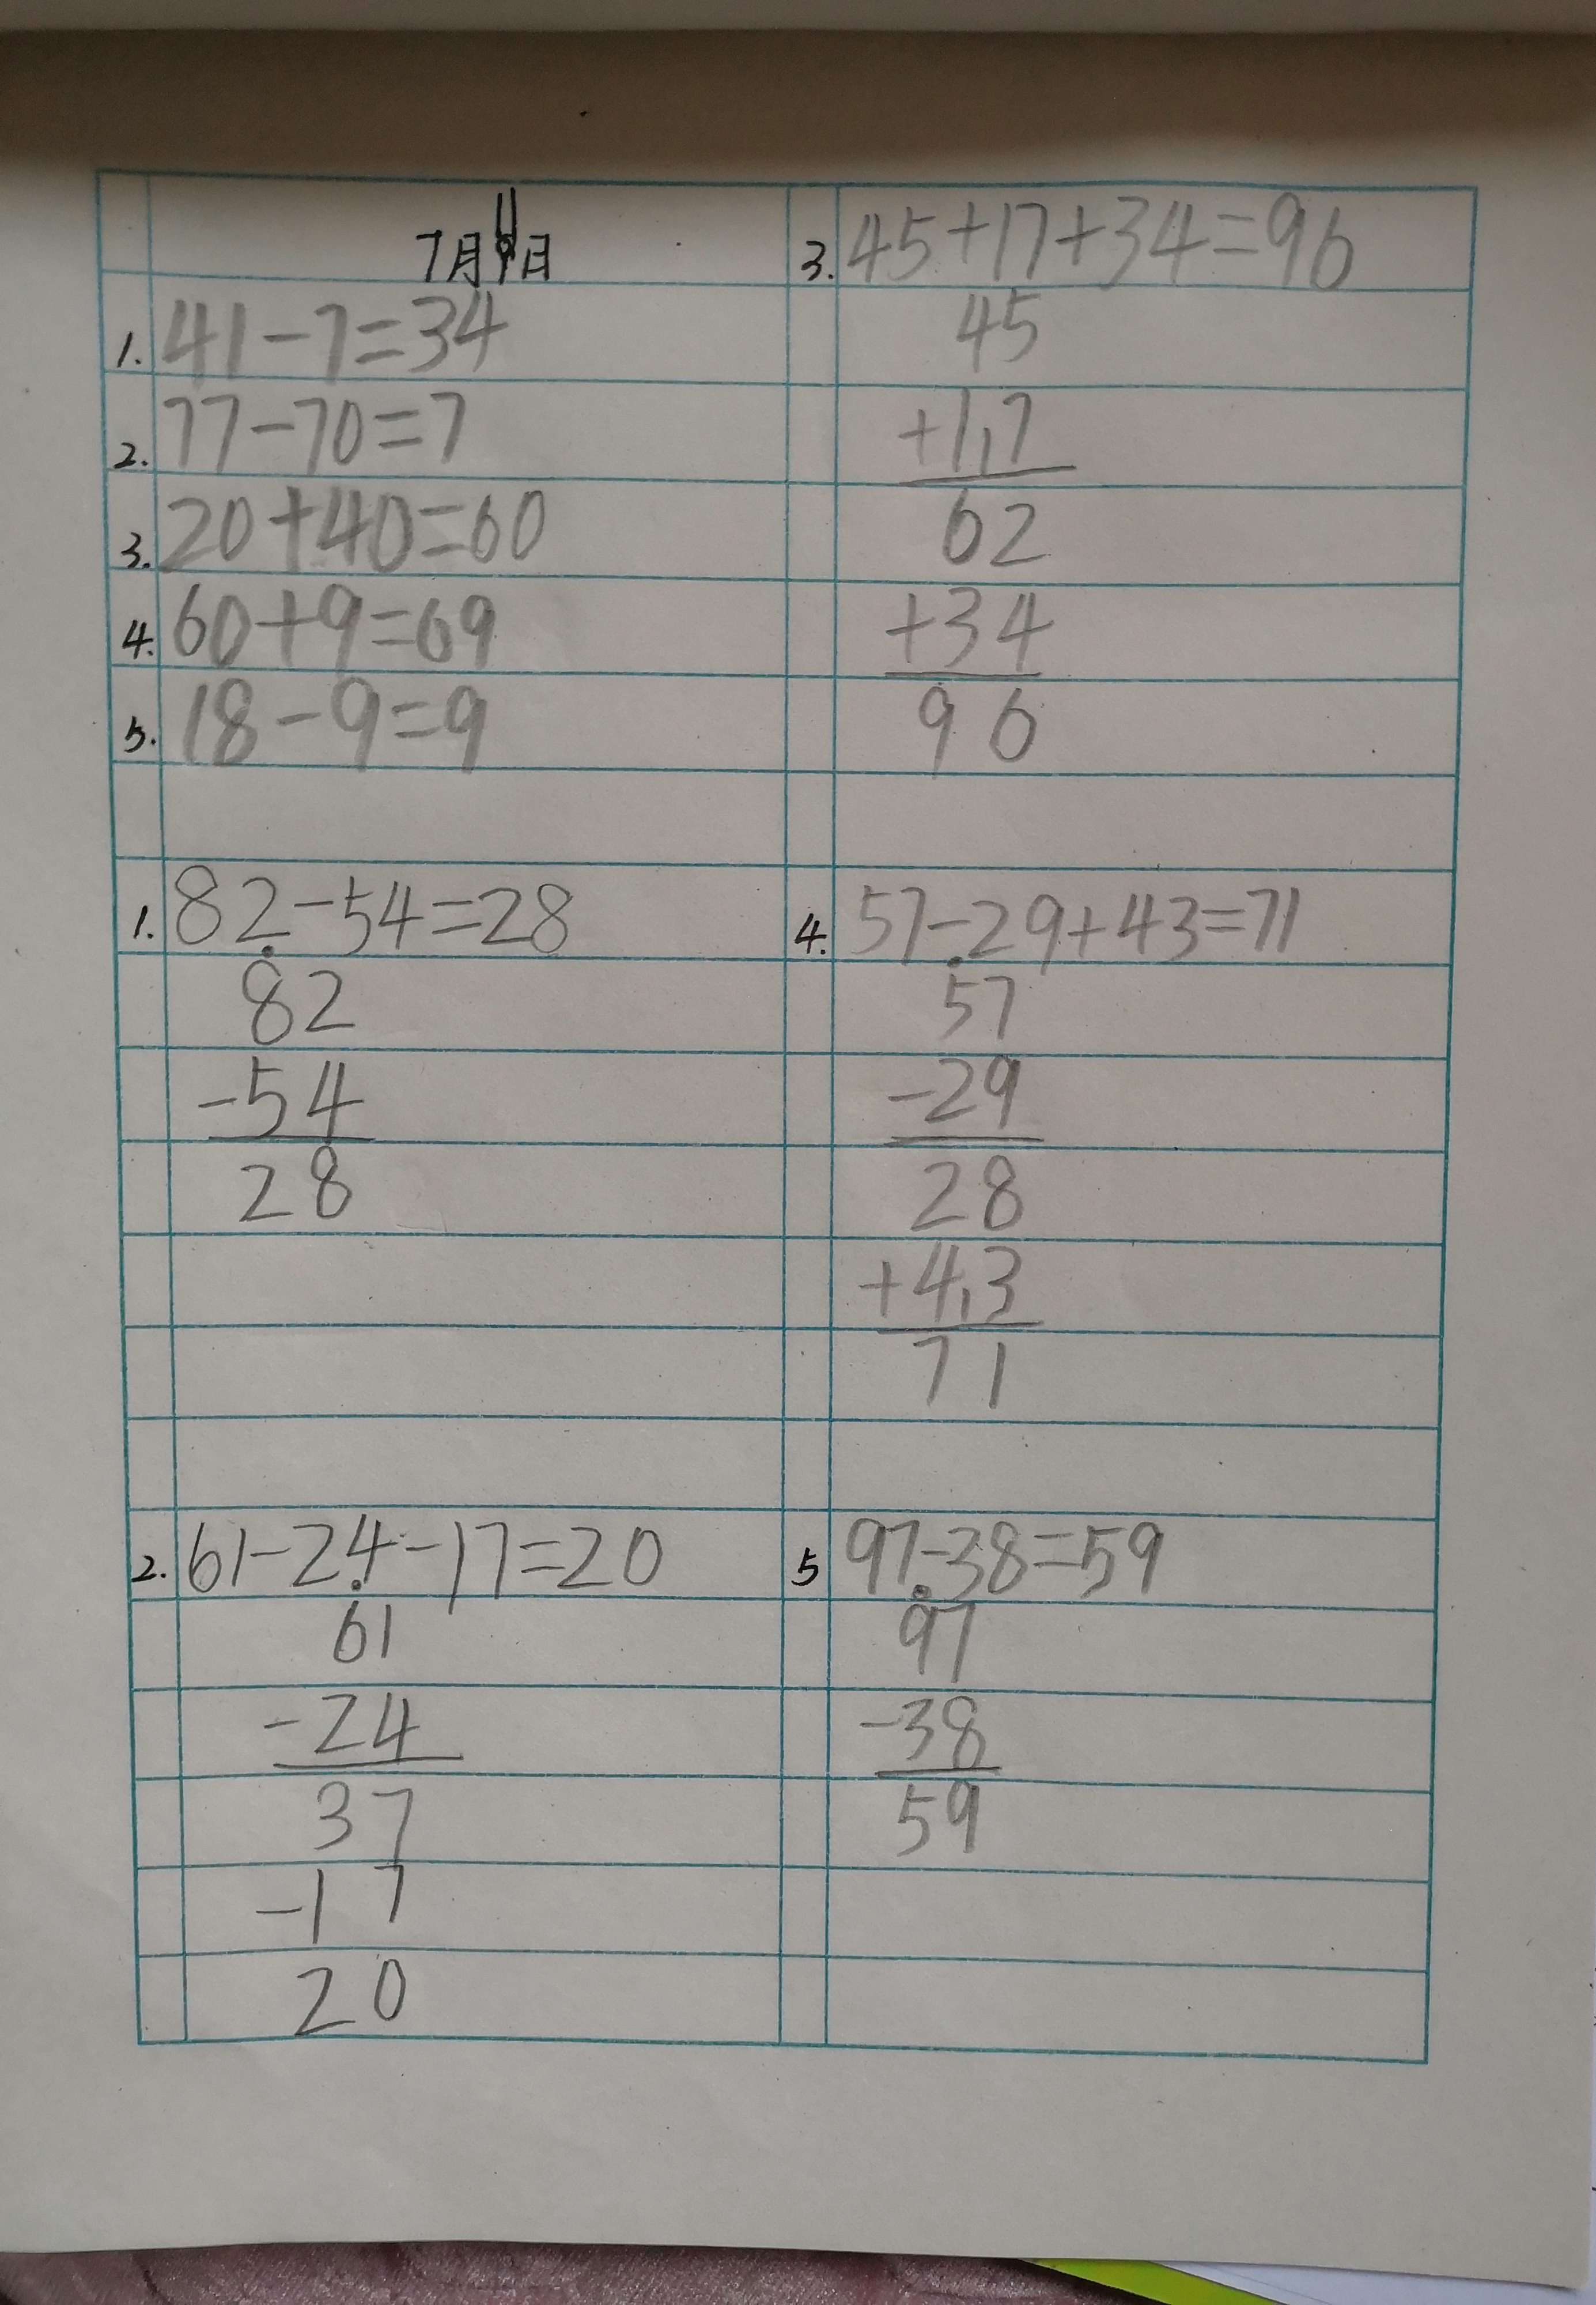 7月11日
1. 41-7=34
2. 77-70=7
3. 20+40=60
4. 60+9=69
5. 18-9=9
1. 82-54=28
82
-54
28
2. 61-24-17=20
61
-24
37
-17
20
3. 45+17+34=96
45
+117
62
+34
96
4. 57-29+43=71
57
-29
28
+413
71
5 97-38=59
97
-38
59